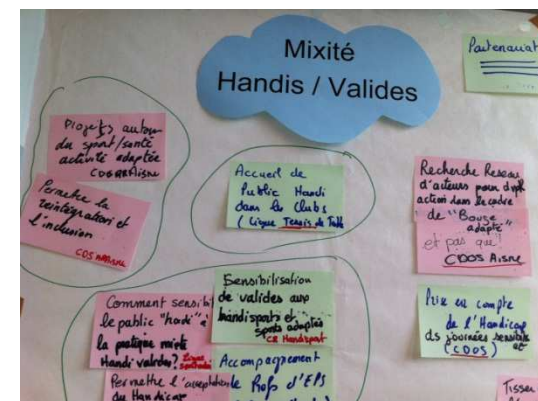 Mixité
Handis / Valides
Partenariat
Projets autour
du sport/santé
activité adaptée
Permettre la
réintégration et
l'inclusion
Accueil de
Public Handi
dans les Clubs
(Ligue Tennis de Table
Recherche Reseau
d'acteurs pour
action dans le cadre
de "Bouge
adapté"
et pas que!
CDOS Aisne
Sensibilisation
de valides aux
handisports et
sports adaptés
CR Handisport
Comment sensibi
le public "handi" à
la pratique mixte
Handi valides?
Ligue
Prise en compte
de l'Handicap
ds journées
(CDOS)
Accompagnement
de Profs d'EPS
Permettre l'acceptation
du Handicap
Tisser